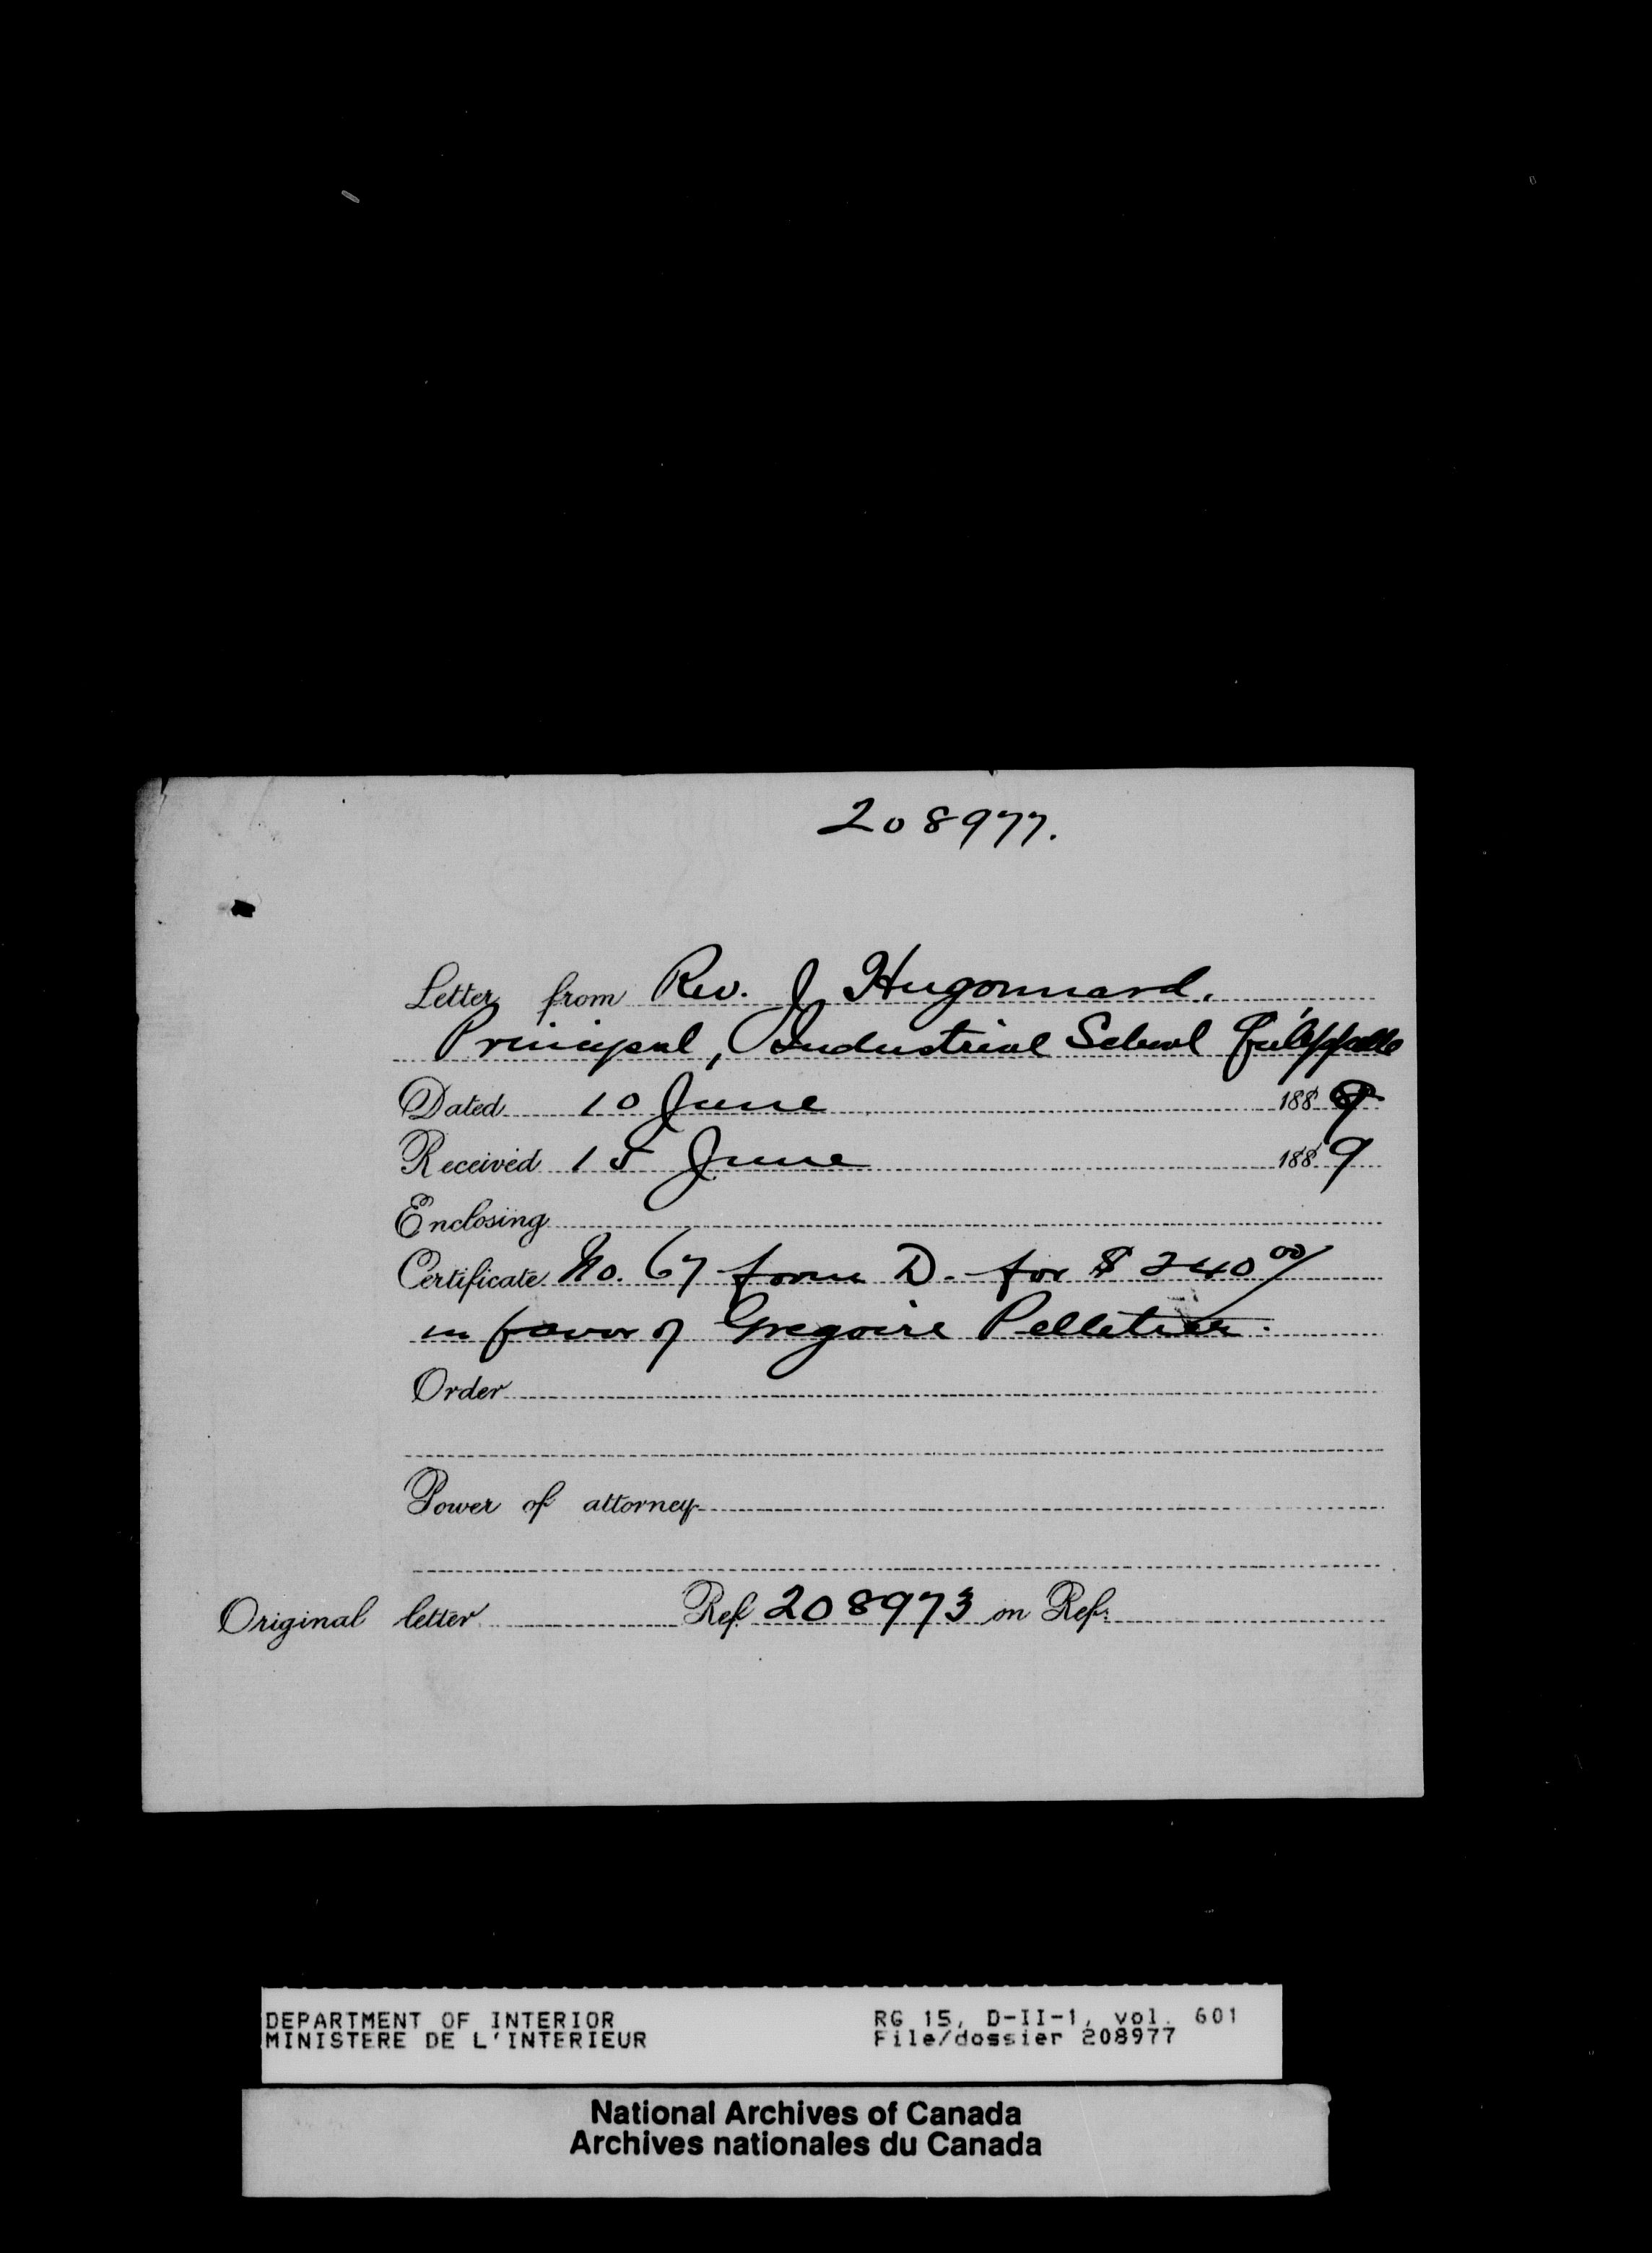 208977.
Letter from Rev. J Hugonnard,
Principal, Industrial School Qu'Appelle
Dated 10 June 1889
Received 15 June 1889
Enclosing
Certificate No. 67 form D. for $240 00/
in favor of Gregoire Pelletier.
Order
Power of attorney
Original letter Ref. 208973 on Ref:
DEPARTMENT OF INTERIOR RG 15, D-II-1, vol. 601
MINISTERE DE L'INTERIEUR File/dossier 208977
National Archives of Canada
Archives nationales du Canada